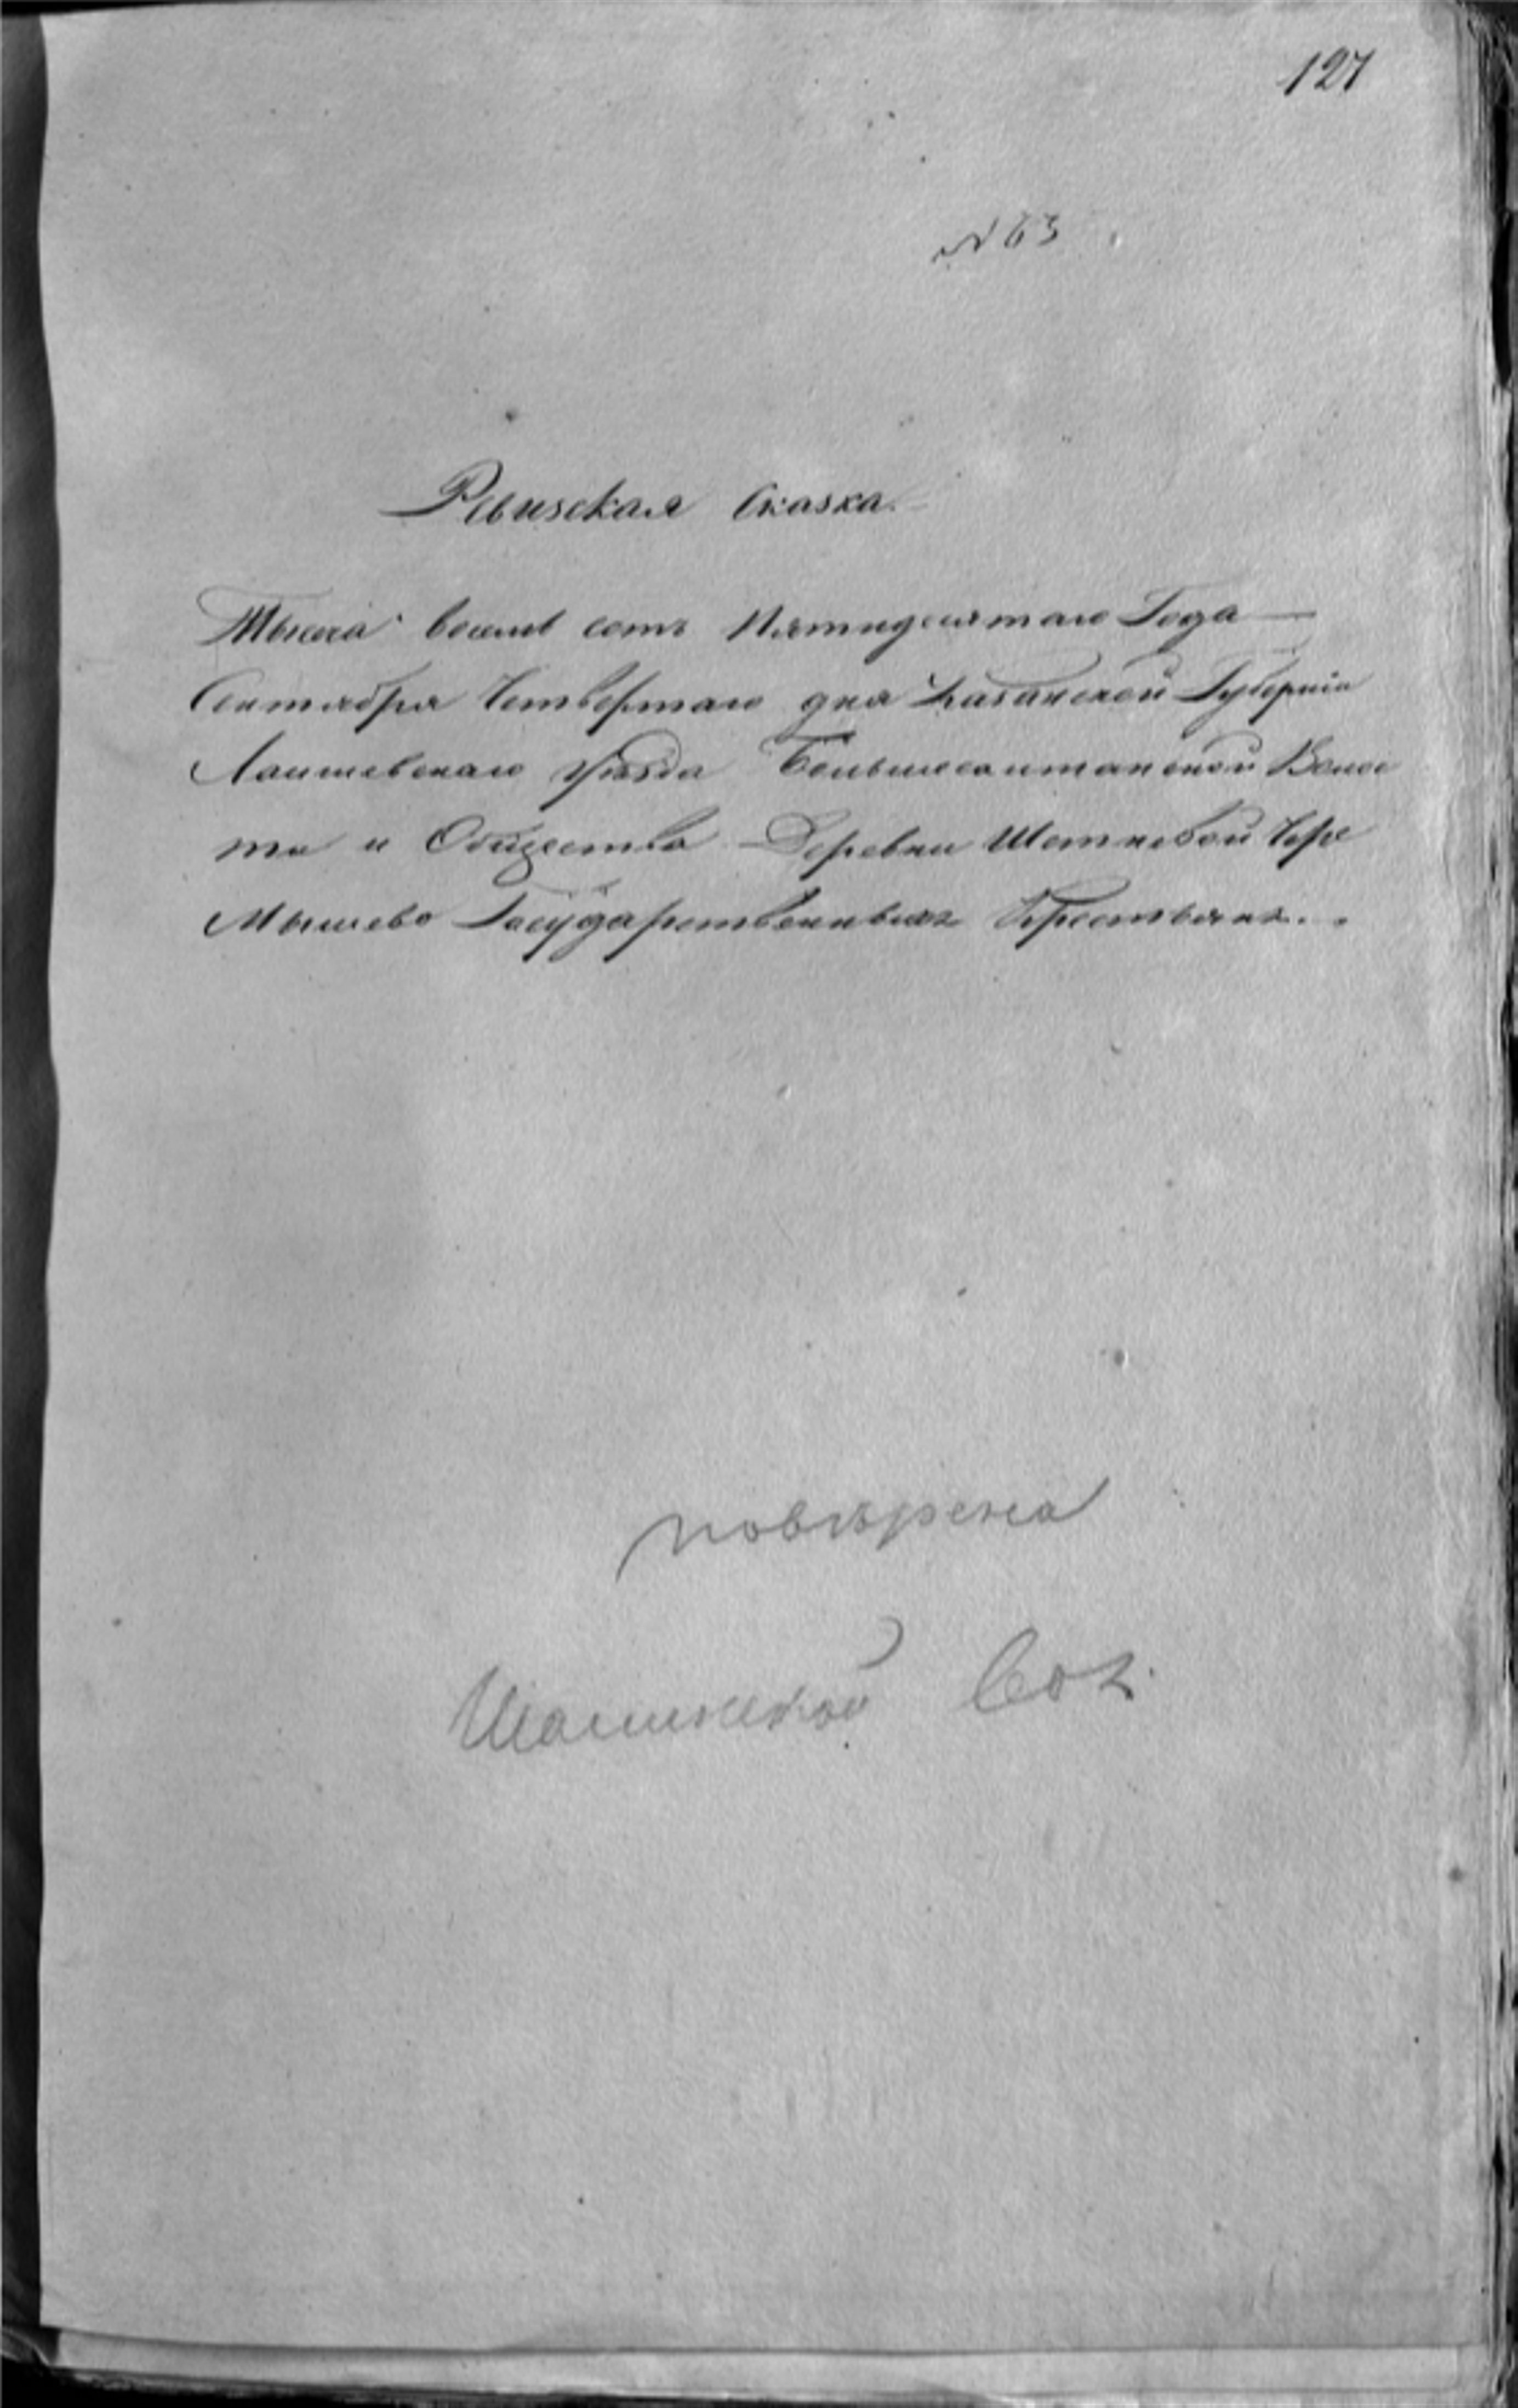 127
№ 63
Ревизская Сказка.
Тысяча восемь сотъ Пятидесятаго Года
Сентября Четвертаго дня Казанской Губерніи
Лаишевскаго уѣзда Большесаитанской Волос
ти и Общества Деревни Шетневой Чере
Мышево Государственныхъ Крестьянъ.
повѣрена